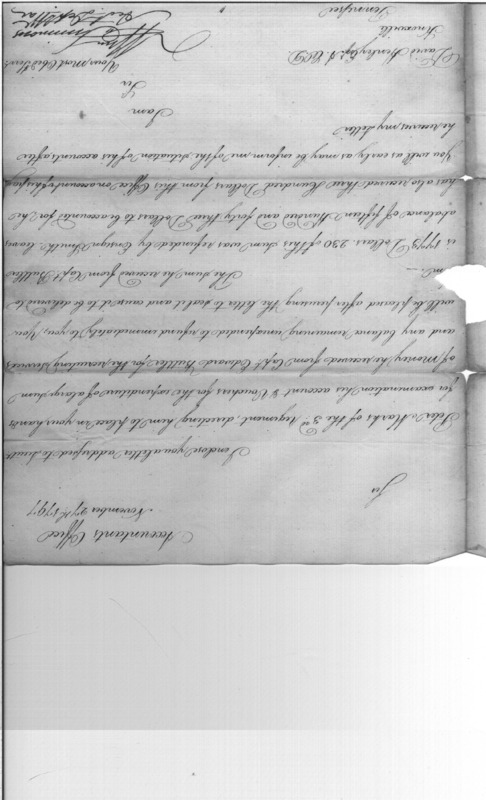 Accountants Office
November 27th 1797
Sir
I enclose you a letter addressed to Lieut
Peter Marks of the 3d Regiment, directing him to place in your hands
for examination his account & Vouchers for the expenditure of a large sum
of Money he received from Capt. Edward Butler for the recruiting service,
and any balance remaining unexpended to refund immediately to you, You
will be pleased after perusing the letter to seal it and cause it to be delivered to
The sum he received from Capt Butler
is 1773 Dollars. 230 of this sum was refunded by Ensign Smith leaving
a balance of fifteen Hundred and forty three Dollars to be accounted for he
has also received three Hundred Dollars from this Office on account of his pay
You will as early as may be inform me of the situation of his accounts after
he receives my letter
I am
Sir
Your most obed Serv
Wm Simmons
David Henley Esq.
Knoxville
Tennessee